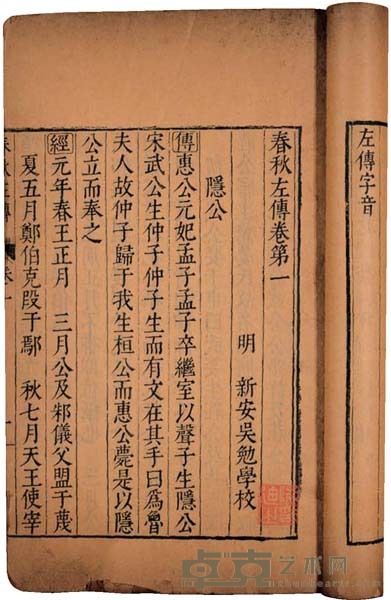 左傳字音
春秋左傳卷第一
明 新安吳勉學校
隱公
傳惠公元妃孟子孟子卒繼室以聲子生隱公
宋武公生仲子仲子生而有文在其手曰為魯
夫人故仲子歸于我生桓公而惠公薨是以隱
公立而奉之
經元年春王正月 三月公及邾儀父盟于蔑
夏五月鄭伯克段于鄢 秋七月天王使宰
春秋左傳 卷一
卓克艺术网